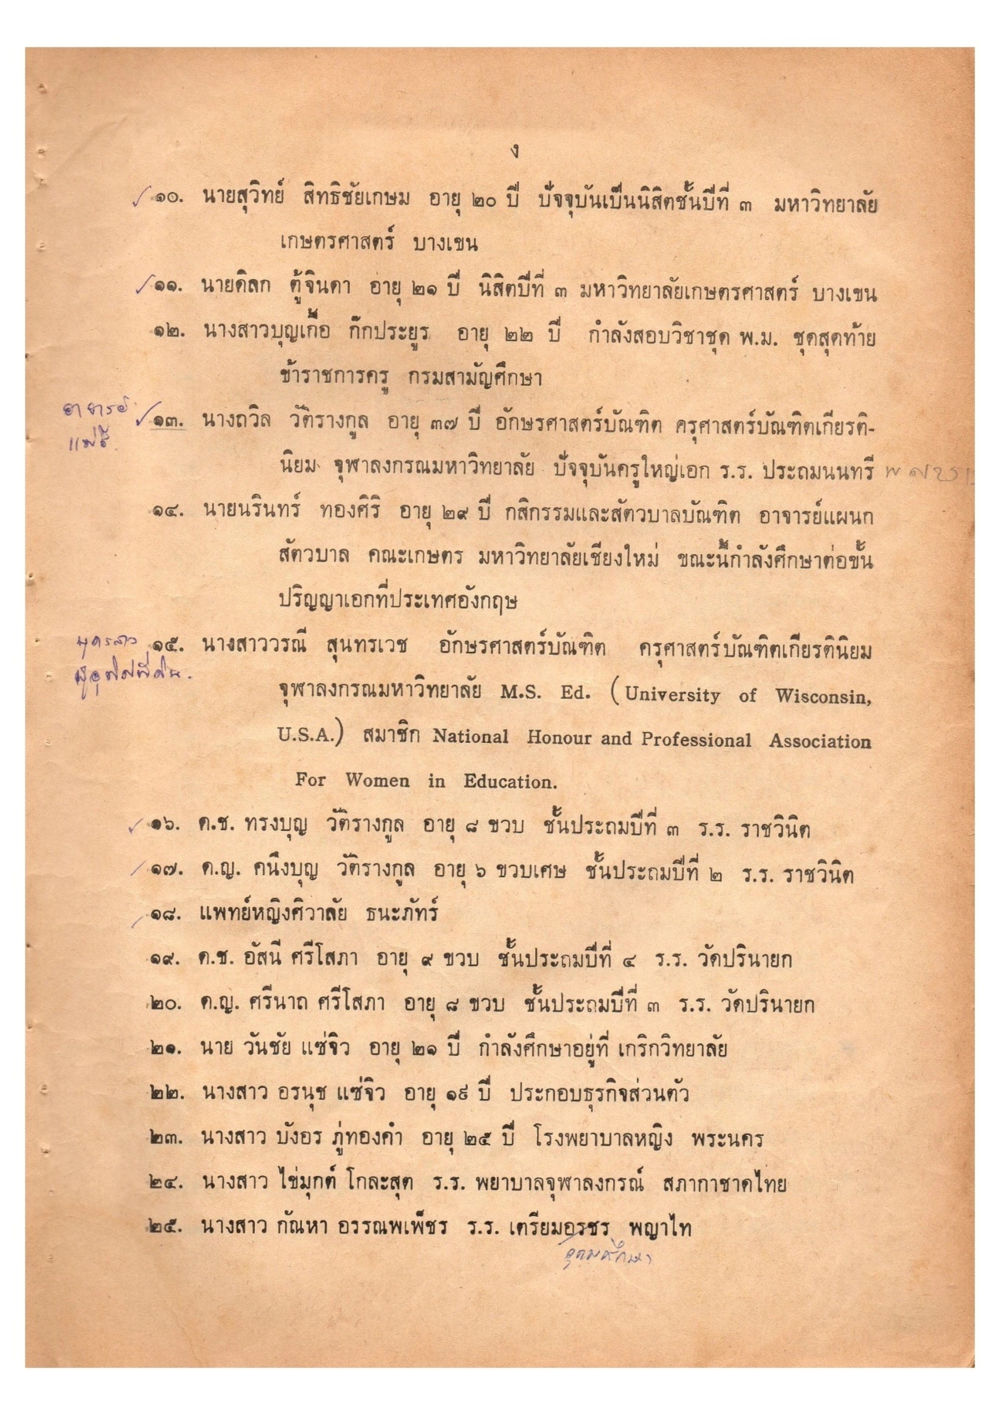 ง
๑๐. นายสุวิทย์ สิทธิชัยเกษม อายุ ๒๐ ปี ปัจจุบันเป็นนิสิตชั้นปีที่ ๓ มหาวิทยาลัย
เกษตรศาสตร์ บางเขน
๑๑. นายดิลก ตู้จินดา อายุ ๒๑ ปี นิสิตปีที่ ๓ มหาวิทยาลัยเกษตรศาสตร์ บางเขน
๑๒. นางสาวบุญเกื้อ กึกประยูร อายุ ๒๒ ปี กำลังสอบวิชาชุด พ.ม. ชุดสุดท้าย
ข้าราชการครู กรมสามัญศึกษา
อาจารย์
แม่ชี
๑๓. นางถวิล วัติรางกูล อายุ ๓๗ ปี อักษรศาสตร์บัณฑิต ครุศาสตร์บัณฑิตเกียรติ-
นิยม จุฬาลงกรณมหาวิทยาลัย ปัจจุบันครูใหญ่เอก ร.ร. ประถมนนทรี
๑๔. นายนรินทร์ ทองศิริ อายุ ๒๙ ปี กสิกรรมและสัตวบาลบัณฑิต อาจารย์แผนก
สัตวบาล คณะเกษตร มหาวิทยาลัยเชียงใหม่ ขณะนี้กำลังศึกษาต่อขั้น
ปริญญาเอกที่ประเทศอังกฤษ
๑๕. นางสาววรณี สุนทรเวช อักษรศาสตร์บัณฑิต ครุศาสตร์บัณฑิตเกียรตินิยม
จุฬาลงกรณมหาวิทยาลัย M.S. Ed. (University of Wisconsin,
U.S.A.) สมาชิก National Honour and Professional Association
For Women in Education.
๑๖. ด.ช. ทรงบุญ วัติรางกูล อายุ ๘ ขวบ ชั้นประถมปีที่ ๓ ร.ร. ราชวินิต
๑๗. ด.ญ. คนึงบุญ วัติรางกูล อายุ ๖ ขวบเศษ ชั้นประถมปีที่ ๒ ร.ร. ราชวินิต
๑๘. แพทย์หญิงศิวาลัย ธนะภัทร์
๑๙. ด.ช. อัสนี ศรีโสภา อายุ ๙ ขวบ ชั้นประถมปีที่ ๔ ร.ร. วัดปรินายก
๒๐. ด.ญ. ศรีนาถ ศรีโสภา อายุ ๘ ขวบ ชั้นประถมปีที่ ๓ ร.ร. วัดปรินายก
๒๑. นาย วันชัย แซ่จิว อายุ ๒๑ ปี กำลังศึกษาอยู่ที่ เกริกวิทยาลัย
๒๒. นางสาว อรนุช แซ่จิว อายุ ๑๙ ปี ประกอบธุรกิจส่วนตัว
๒๓. นางสาว บังอร ภู่ทองคำ อายุ ๒๕ ปี โรงพยาบาลหญิง พระนคร
๒๔. นางสาว ไข่มุกต์ โกละสุต ร.ร. พยาบาลจุฬาลงกรณ์ สภากาชาดไทย
๒๕. นางสาว กัณหา อรรณพเพ็ชร ร.ร. เตรียมอรชร พญาไท
อุดมศึกษา